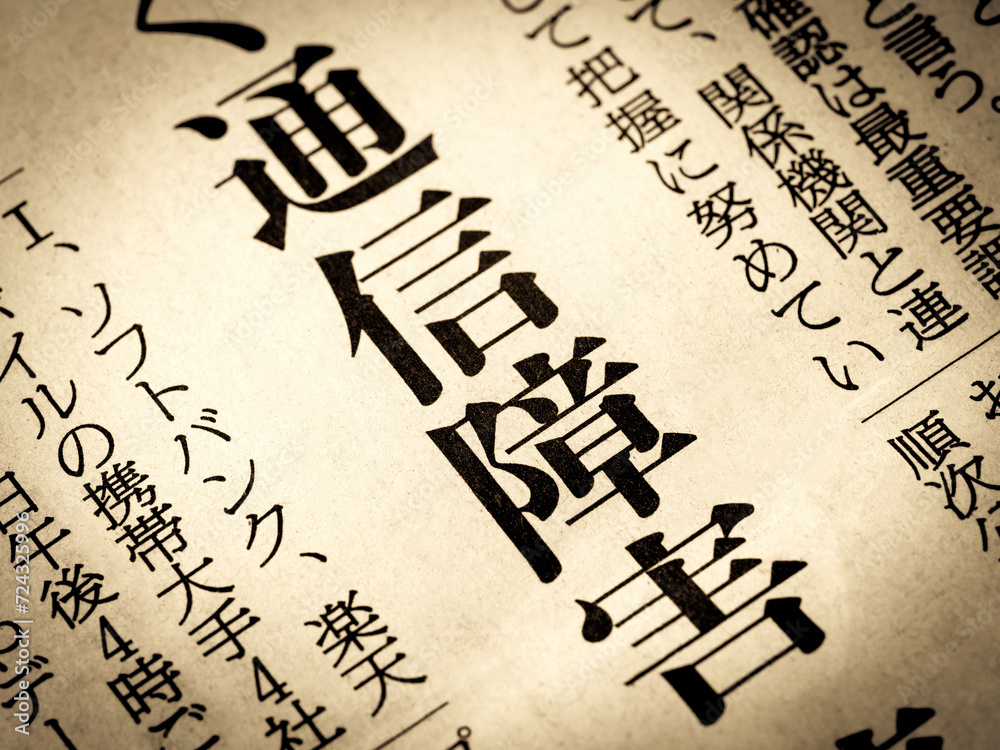 言う。
確認は最重要課
て、関係機関と連
して把握に努めてい
順次
通信障害
I、ソフトバンク、楽天
バイルの携帯大手4社
日午後4時ご
Adobe Stock | #724325996